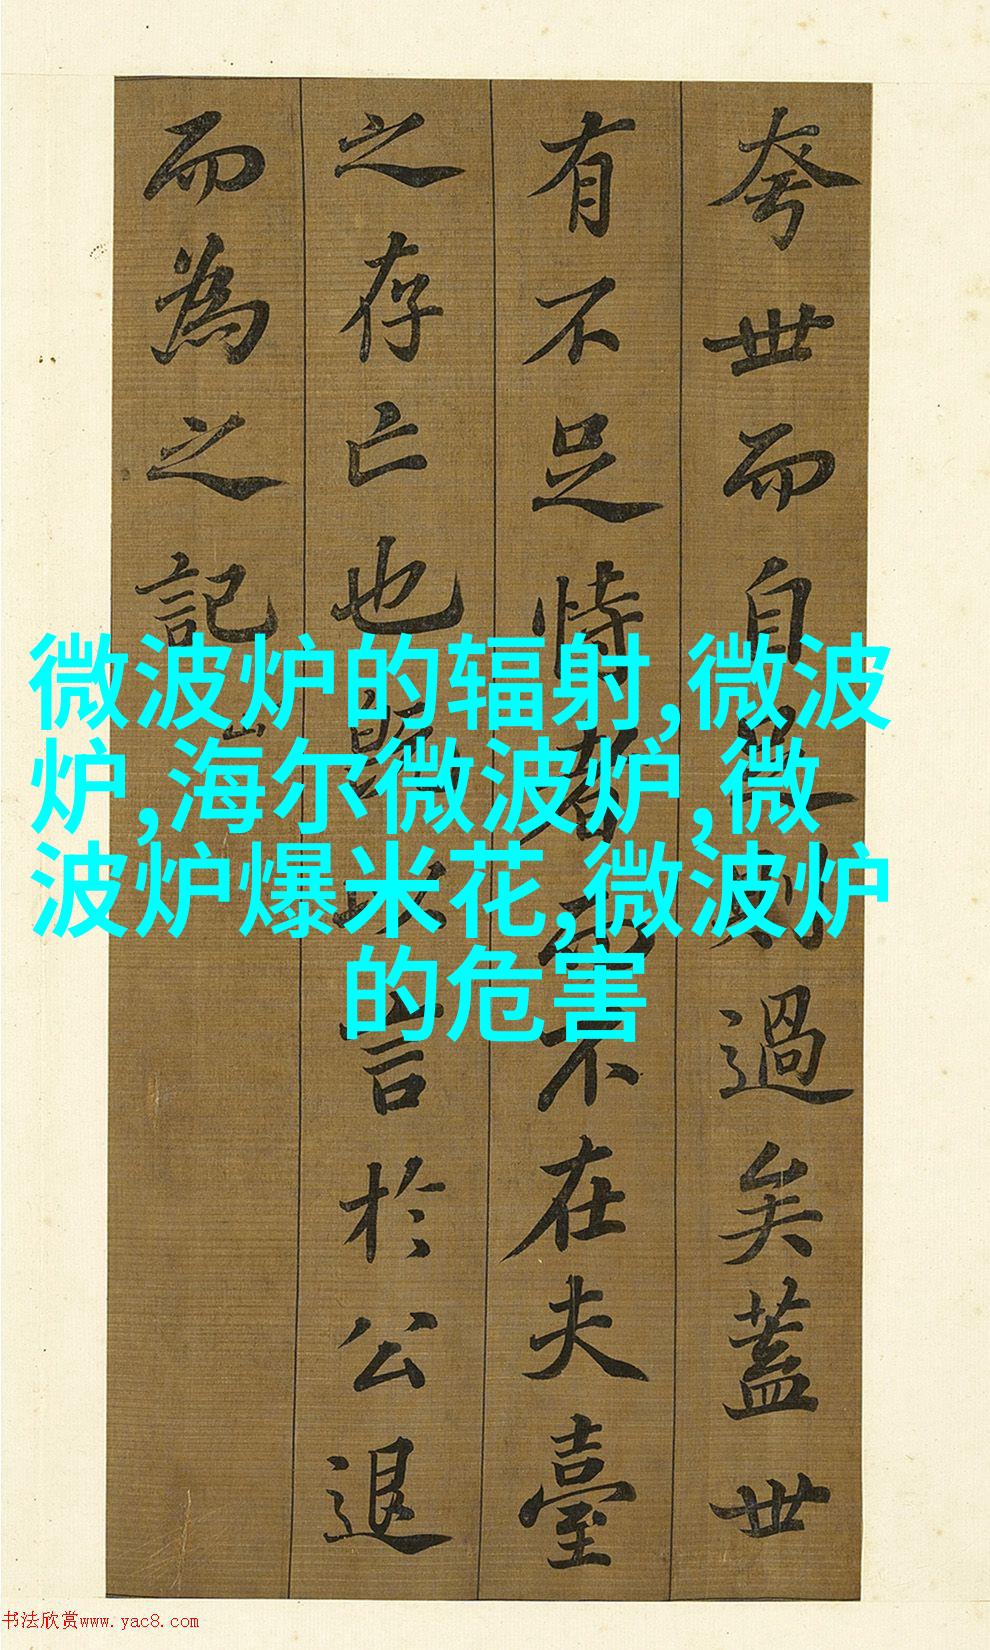 夸世而自足則過矣蓋世
有不足恃者而不在夫臺
之存亡也既以言於公退
而為之記
微波炉的辐射,微波
炉,海尔微波炉,微
波炉爆米花,微波炉
的危害
书法欣赏www.yac8.com